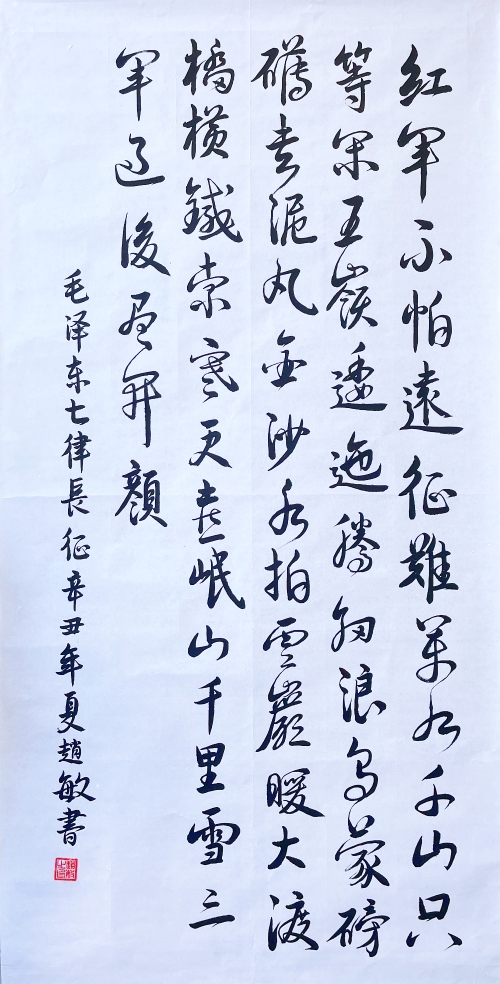 紅軍不怕遠征難萬水千山只
等閑五嶺逶迤騰細浪烏蒙磅
礴走泥丸金沙水拍雲巖暖大渡
橋橫鐵索寒更喜岷山千里雪三
軍過後盡開顏
毛泽东七律長征辛丑年夏趙敏書